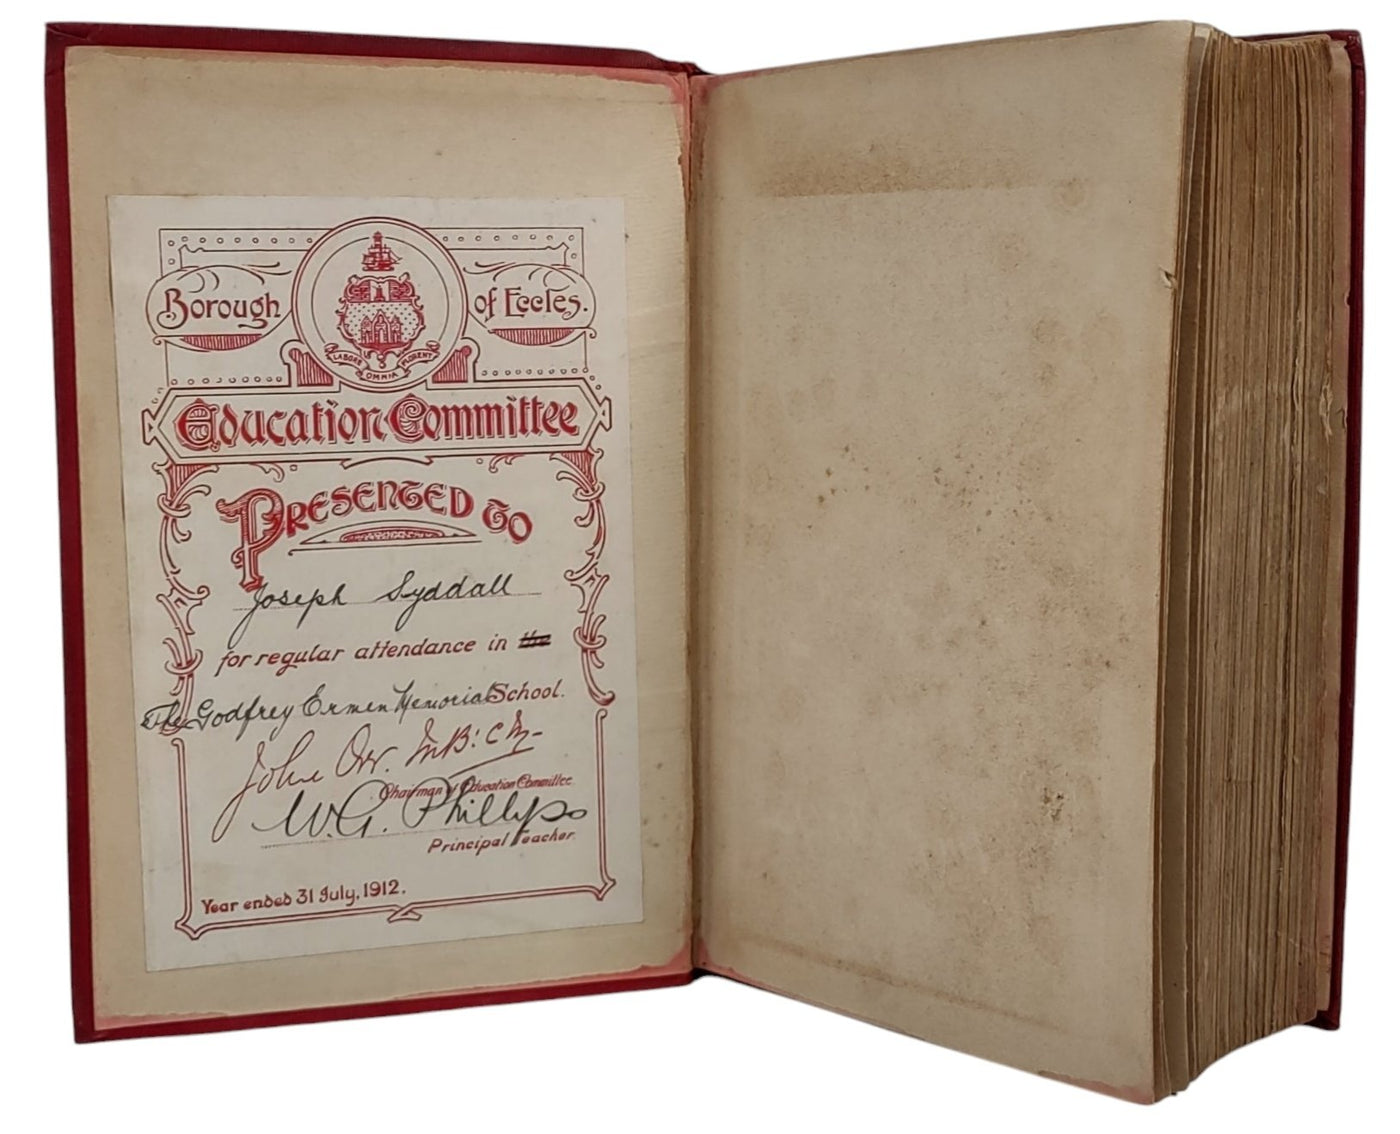 Borough of Eccles.
LABORE OMNIA FLORENT
Education Committee
PRESENTED TO
Joseph Syddall
for regular attendance in the
The Godfrey Ermen Memorial School.
John Orr. M.B: C.M-
Chairman of Education Committee
W. G. Phillips
Principal Teacher
Year ended 31 July, 1912.